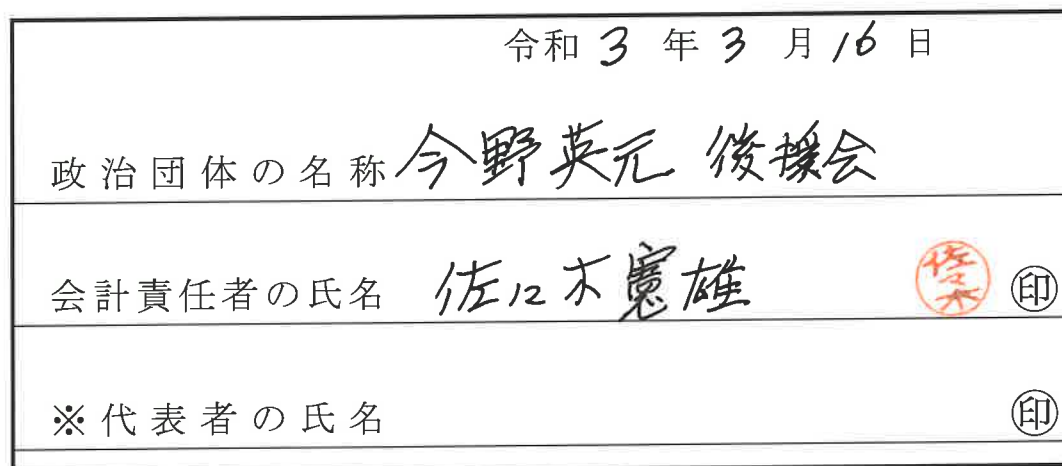 令和 3 年 3 月 16 日
政治団体の名称 今野英元 後援会
会計責任者の氏名 佐々木憲雄 佐々木 ㊞
※代表者の氏名 ㊞